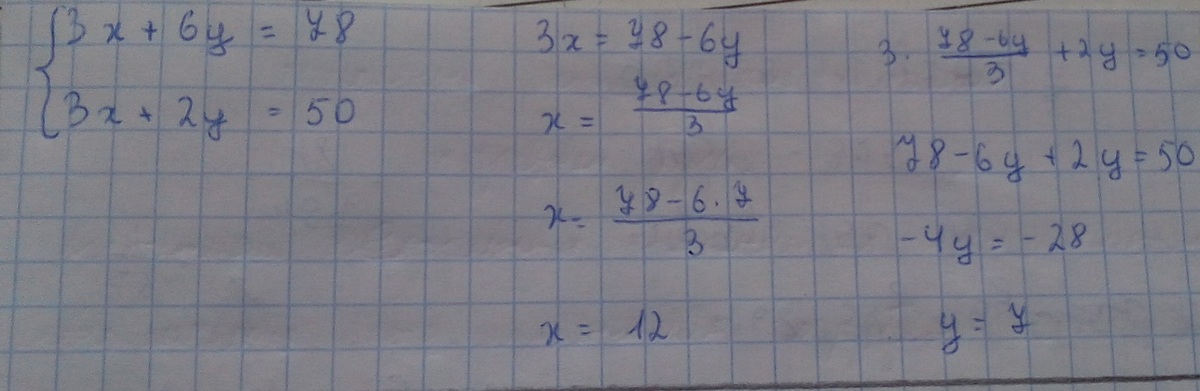 3x + 6y = 78
3x + 2y = 50
3x = 78 - 6y
x = (78 - 6y)/3
x = (78 - 6 · 7)/3
x = 12
3 · (78 - 6y)/3 + 2y = 50
78 - 6y + 2y = 50
-4y = -28
y = 7